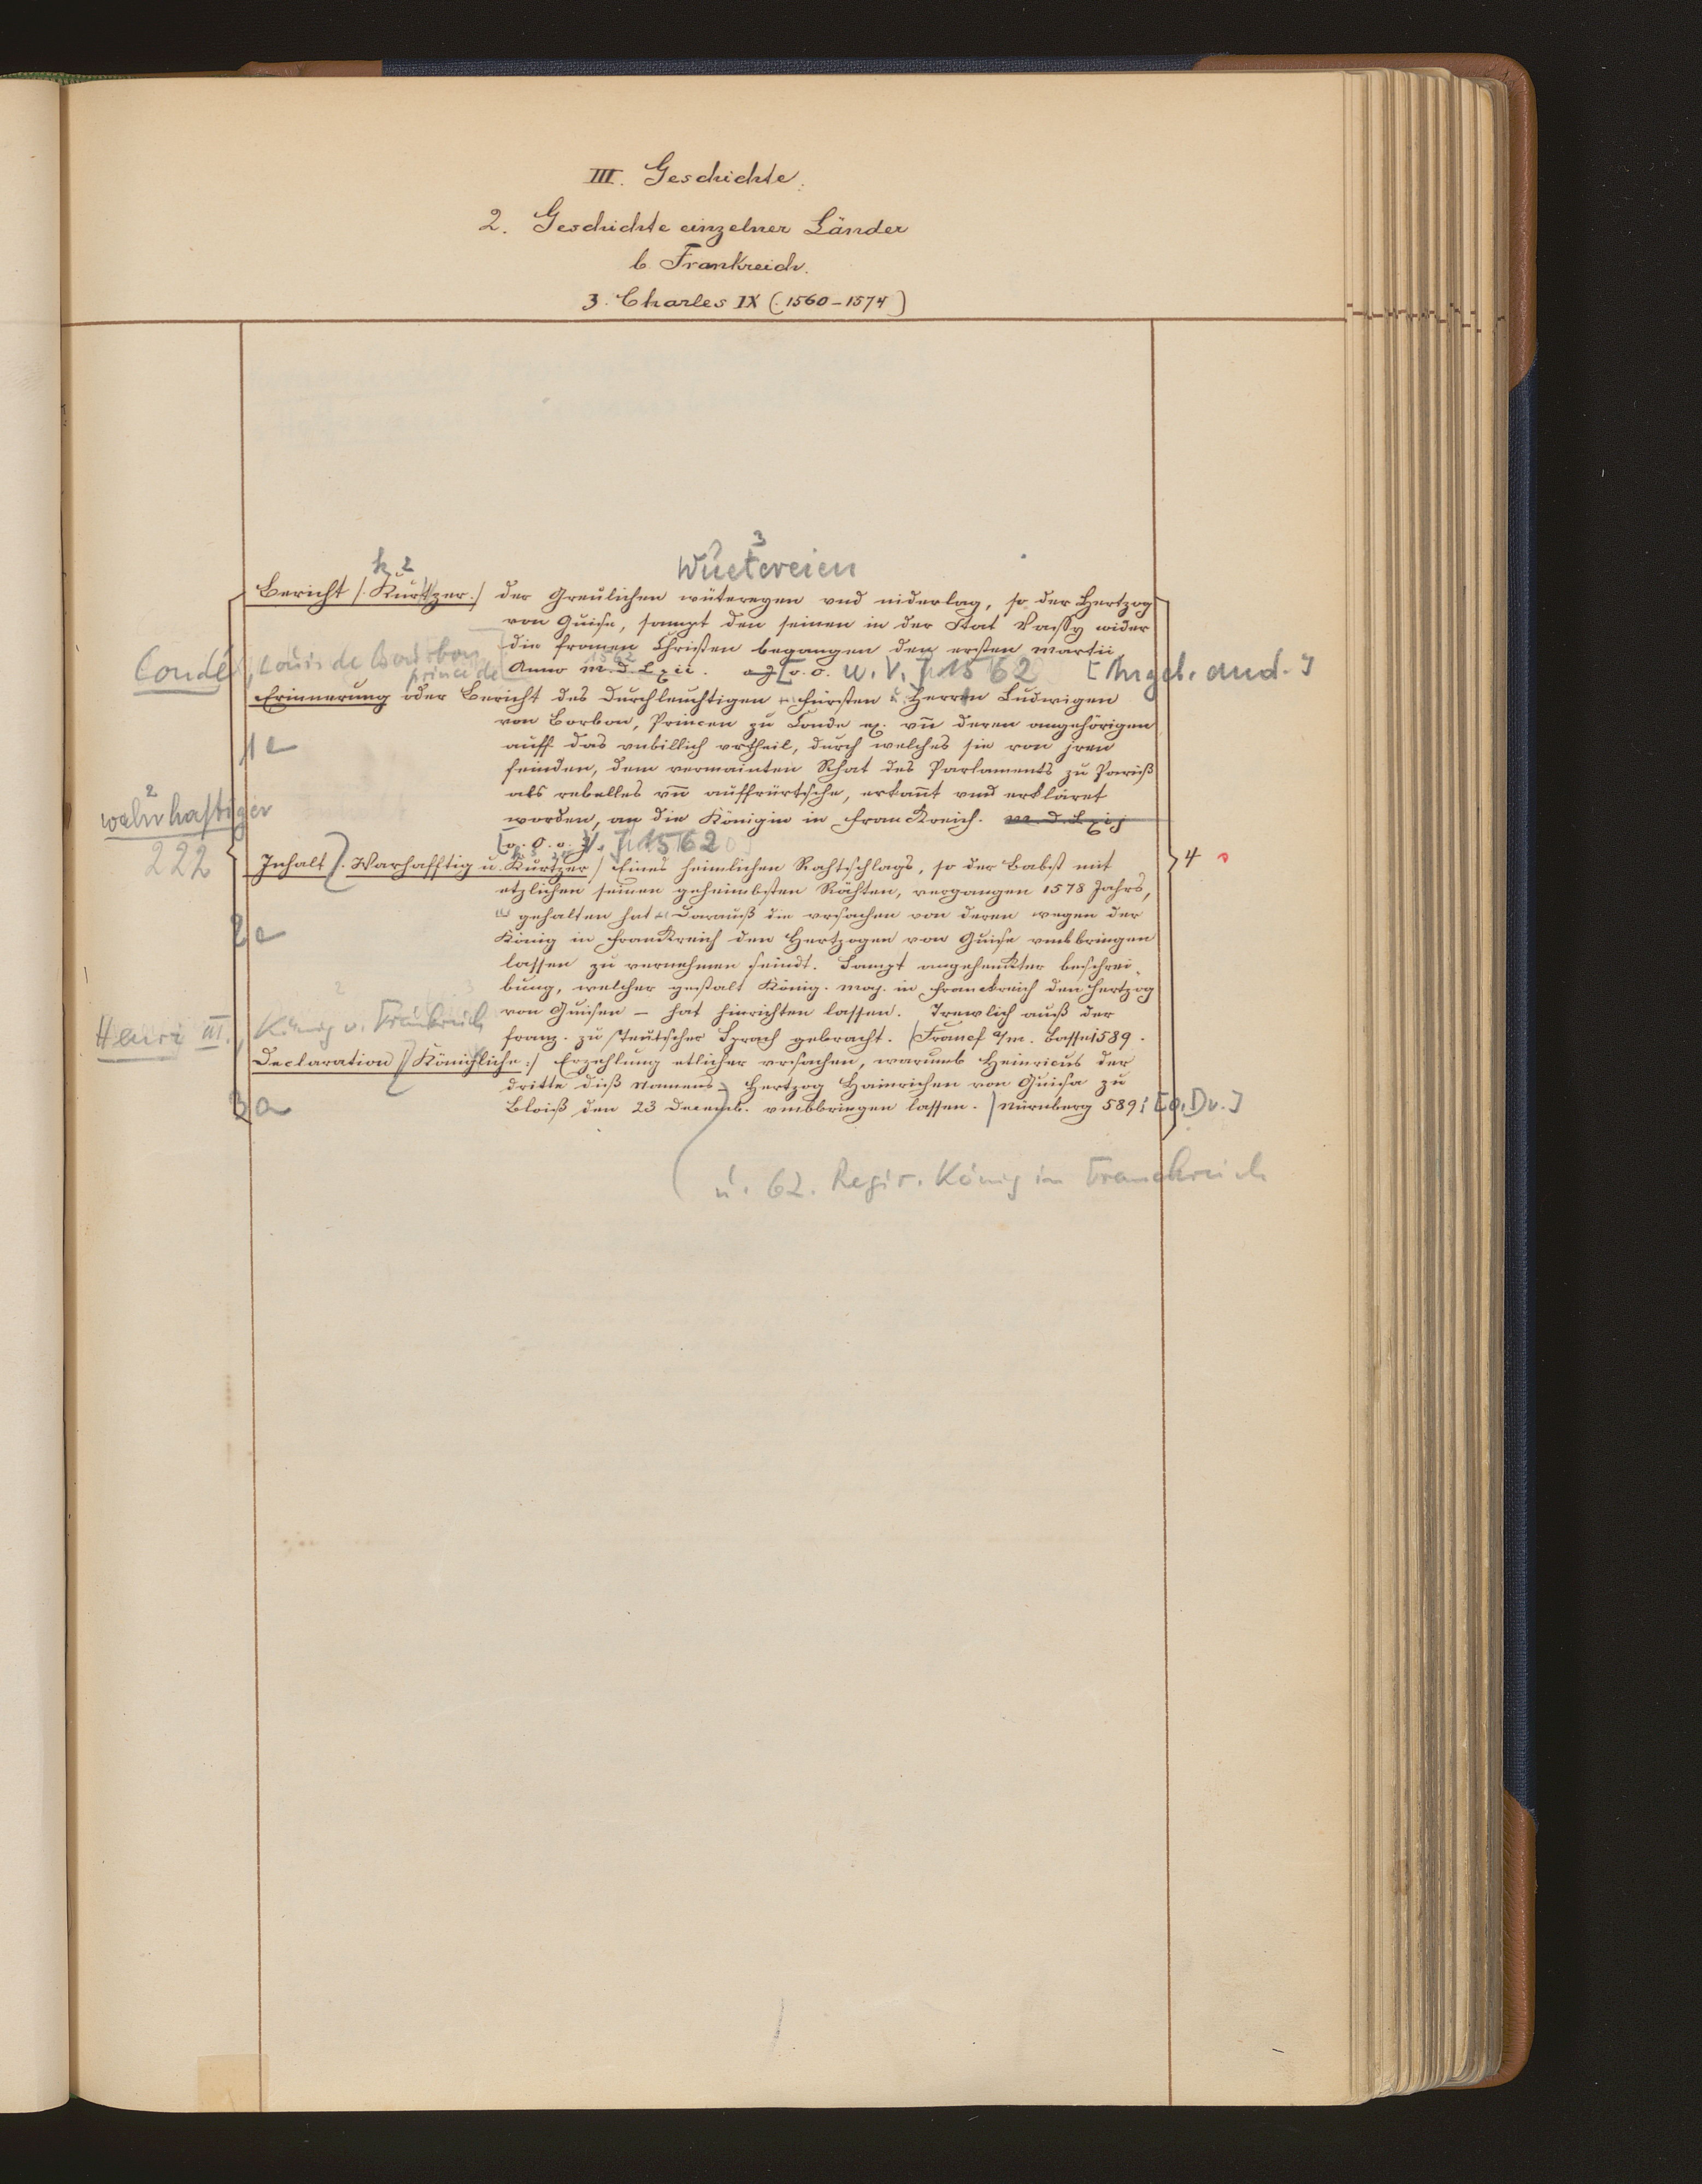 III. Geschichte.
2. Geschichte einzelner Länder
b. Frankreich.
3. Charles IX (1560-1574)
3
Wuetereien
k 2
Bericht (. Kurtzer.) der Greulichen wüteregen vnd niderlag, so der Hertzog
von Guise, sampt den seinen in der Stat Vassy wider
die fromen Christen begangen den ersten martii
Condé, Louis de Bourbon
prince de
1562
Anno m.d.Lxii. [o. O. u. V.] 1562 [Angeb. and.]
Erinnerung oder Bericht des Durchleuchtigen Fürsten u. Herrn Ludwigen
von Borbon, Princen zu Conde etc. vñ deren angehörigen
1 a
auff das vnbillich vrtheil, durch welches sie von jren
feinden, dem vermainten Rhat des Parlaments zu Pariß
als rebelles vñ auffrürische, erkañt vnd erkläret
2
wahrhaftiger
worden, an die Königin in Franckreich. m.d.Lxij
[o. O. u. V.] 1562
222
Inhalt (. Warhafftig u. Kurtzer) Eines heimlichen Rahtschlags, so der Babst mit
etzlichen seinen geheimbsten Rähten, vergangen 1578 Jahrs,
gehalten hat Darauß die vrsachen von deren wegen der
2 a
König in Franckreich den Hertzogen von Guise vmbbringen
lassen zu vernehmen seindt. Sampt angehenckter beschrei-
bung, welcher gestalt König. May. in Franckreich den Hertzog
2 3
Henri III., König v. Frankreich
von Guisen - hat hinrichten lassen. Trewlich auß der
franz. zu Teutscher Sprach gebracht. Francf a/m. Basse 1589.
Declaration (Königliche:) Erzehlung etlicher vrsachen, warumb Heinricus der
dritte diß Namens Hertzog Hainrichen von Guisa zu
3 a
Bloiß den 23 Decemb. vmbbringen lassen. Nürnberg 589. [o. Dr.]
4
u. 62. Regir. König in Franckreich